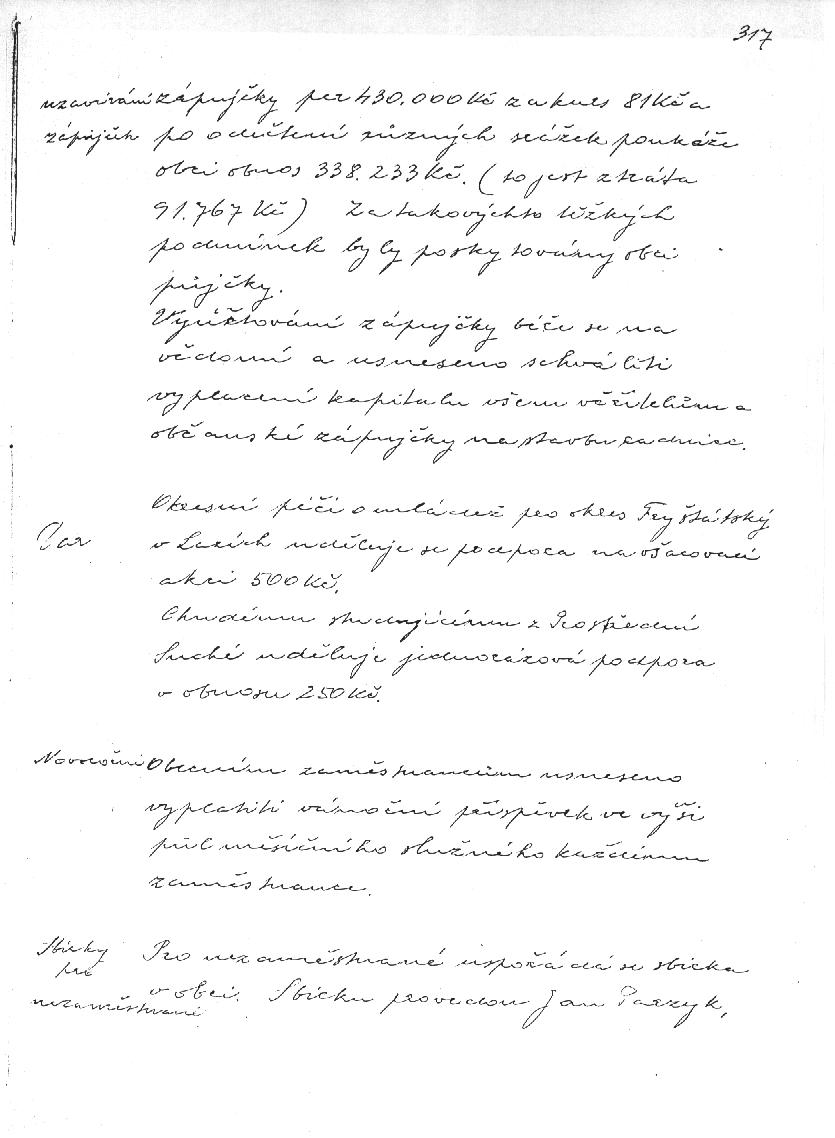 317
uzavírání zápujčky per 430.000 Kč za kurs 81 Kč a
zápůjček po odečtení různých srážek poukáže
obci obnos 338.233 Kč. (to jest ztráta
91.767 Kč) Za takovýchto těžkých
podmínek byly poskytovány obci
půjčky.
Vyúčtování zápujčky béře se na
vědomí a usneseno schváliti
vyplacení kapitalu všem věřitelům a
občanské zápujčky na stavbu radnice.
Okresní péči o mládež pro okres Fryštátský
Dar v Lazích uděluje se podpora na ošacovací
akci 500 Kč.
Chudému studujícímu z Prostřední
Suché uděluje jednorázová podpora
v obnosu 250 Kč.
Novoroční Obecním zaměstnancům usneseno
vyplatiti vánoční příspěvek ve výši
půl měsíčního služného každému
zaměstnance.
Sbírky Pro nezaměstnané uspořádá se sbírka
pro
v obci. Sbírku provedou Jan Parzyk,
nezaměstnané